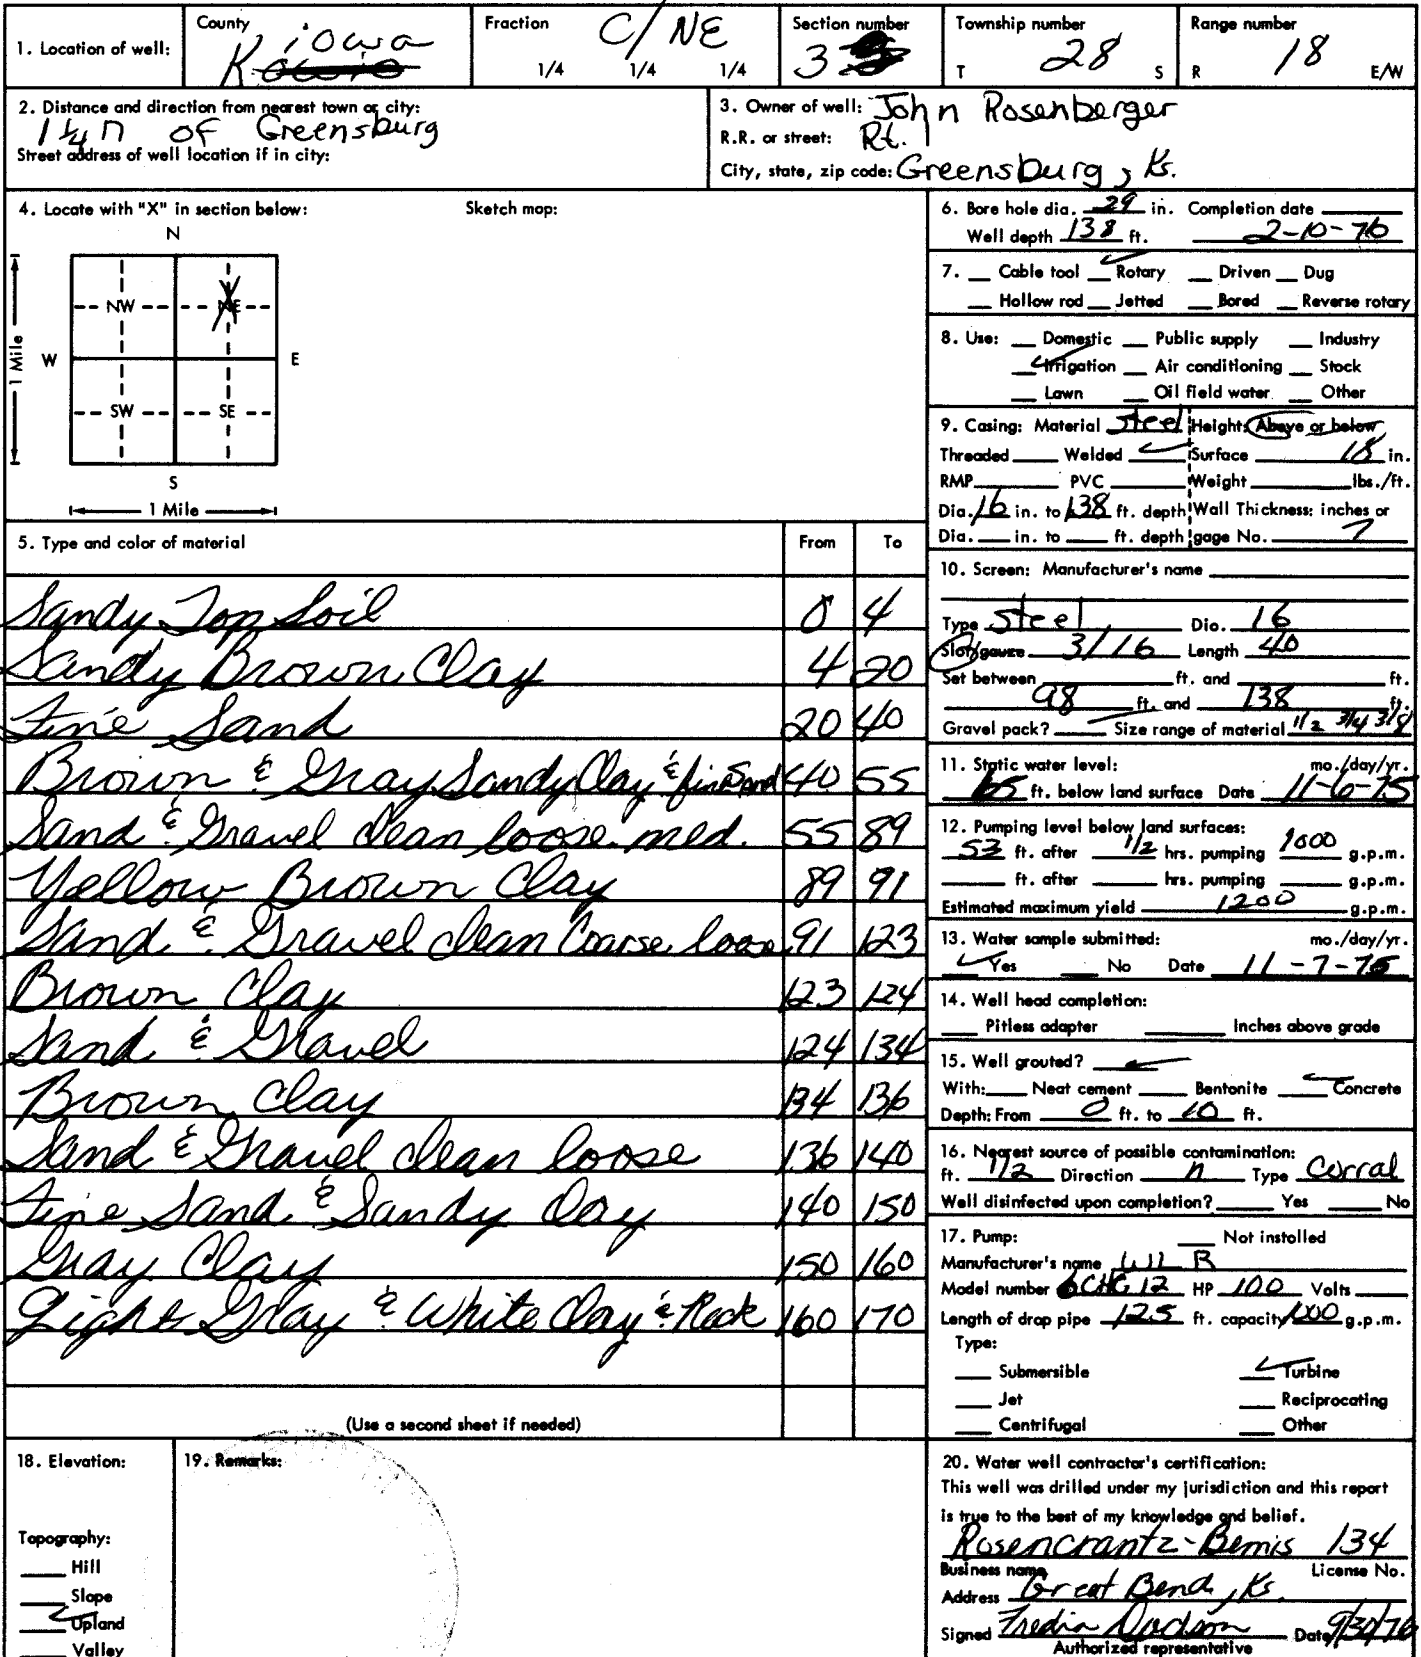 1. Location of well: County Kiowa Fraction C/NE 1/4 1/4 1/4 Section number 3 Township number T 28 S Range number R 18 E/W
2. Distance and direction from nearest town or city:
1 1/4 n of Greensburg
Street address of well location if in city:
3. Owner of well: John Rosenberger
R.R. or street: Rt. 1
City, state, zip code: Greensburg, Ks.
4. Locate with "X" in section below: Sketch map:
N
NW NE
W E
SW SE
S
1 Mile
1 Mile
5. Type and color of material From To
Sandy Top Soil 0 4
Sandy Brown Clay 4 20
Fine Sand 20 40
Brown & Gray Sandy Clay & fine Sand 40 55
Sand & Gravel clean loose med. 55 89
Yellow Brown Clay 89 91
Sand & Gravel clean Coarse loose 91 123
Brown Clay 123 124
Sand & Gravel 124 134
Brown Clay 134 136
Sand & Gravel clean loose 136 140
Fine Sand & Sandy Clay 140 150
Gray Clay 150 160
Light Gray & White Clay & Rock 160 170
(Use a second sheet if needed)
6. Bore hole dia. 29 in. Completion date
Well depth 138 ft. 2-10-76
7. Cable tool ✓ Rotary Driven Dug
Hollow rod Jetted Bored Reverse rotary
8. Use: Domestic Public supply Industry
✓ Irrigation Air conditioning Stock
Lawn Oil field water Other
9. Casing: Material steel Height: Above or below
Threaded Welded ✓ Surface 18 in.
RMP PVC Weight lbs./ft.
Dia. 16 in. to 138 ft. depth Wall Thickness: inches or
Dia. in. to ft. depth gage No. 7
10. Screen: Manufacturer's name
Type steel Dia. 16
Slot/gauze 3/16 Length 40
Set between ft. and ft.
98 ft. and 138 ft.
Gravel pack? ✓ Size range of material 1/2 3/4 3/8
11. Static water level: mo./day/yr.
ft. below land surface Date 11-6-75
12. Pumping level below land surfaces:
53 ft. after 1/2 hrs. pumping 1000 g.p.m.
ft. after hrs. pumping g.p.m.
Estimated maximum yield 1200 g.p.m.
13. Water sample submitted: mo./day/yr.
✓ Yes No Date 11-7-75
14. Well head completion:
Pitless adapter Inches above grade
15. Well grouted? ✓
With: Neat cement Bentonite ✓ Concrete
Depth: From 0 ft. to 10 ft.
16. Nearest source of possible contamination:
ft. 1/2 Direction n Type corral
Well disinfected upon completion? Yes No
17. Pump: Not installed
Manufacturer's name WLR
Model number CHC 12 HP 100 Volts
Length of drop pipe 125 ft. capacity 1000 g.p.m.
Type:
Submersible ✓ Turbine
Jet Reciprocating
Centrifugal Other
18. Elevation:
Topography:
Hill
Slope
✓ Upland
Valley
19. Remarks:
20. Water well contractor's certification:
This well was drilled under my jurisdiction and this report
is true to the best of my knowledge and belief.
Rosencrantz-Bemis 134
Business name License No.
Address Great Bend, Ks.
Signed Date 9/30/76
Authorized representative